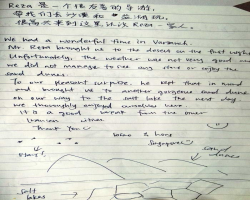 Reza 是一个很友善的导游,
带我们去沙漠和
很高兴来到这里认识 Reza
We had a wonderful time in Varzaneh.
Mr. Reza brought us to the desert on the first night
Unfortunately, the weather was not very good and
we did not manage to see any stars or enjoy the
sand dunes.
To our pleasant surprise, he kept that in mind
and brought us to another gorgeous sand dune
on our way to the salt lake the next day.
We thoroughly enjoyed ourselves here.
It is a good break from the other
Iranian cities
Thank you
Singapore
Stars!
sand dunes
salt
lakes